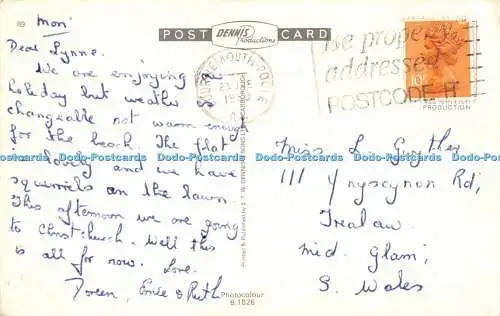 89
Mon:
POST
DENNIS
Productions
CARD
Dear Lynne.
We are enjoying a
holiday but weather is
changeable not warm enough
for the beach. The flat
is lovely and we have
squirrels on the lawn.
This afternoon we are going
to Christchurch. Well this
is all for now. Love.
Doreen, Ernie & Ruth
BOURNEMOUTH-POOLE
Be properly
addressed
POSTCODE IT
10
PRODUCTION
Miss L
111 Ynyscynon Rd,
Trealaw,
Mid. Glam;
S. Wales
Printed & Published by E. T. W. DENNIS & SONS LTD., SCARBOROUGH
Photocolour
B.1826
Dodo-Postcards Dodo-Postcards Dodo-Postcards Dodo-Postcards Dodo-Postcards